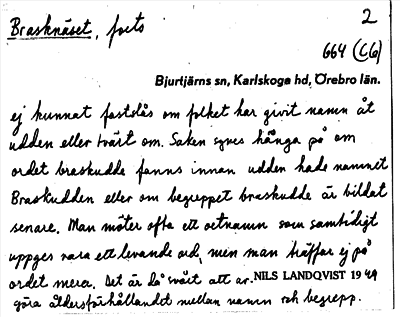 Brasknäset, forts
2
664 (C6)
Bjurtjärns sn, Karlskoga hd, Örebro län.
ej kunnat fastslås om folket har givit namn åt
udden eller tvärt om. Saken synes hänga på om
ordet braskudde fanns innan udden hade namnet
Braskudden eller om begreppet braskudde är bildat
senare. Man möter ofta ett ortnamn som samtidigt
uppges vara ett levande ord, men man träffar ej på
ordet mera. Det är då svårt att av- NILS LANDQVIST 1949
göra åldersförhållandet mellan namn och begrepp.